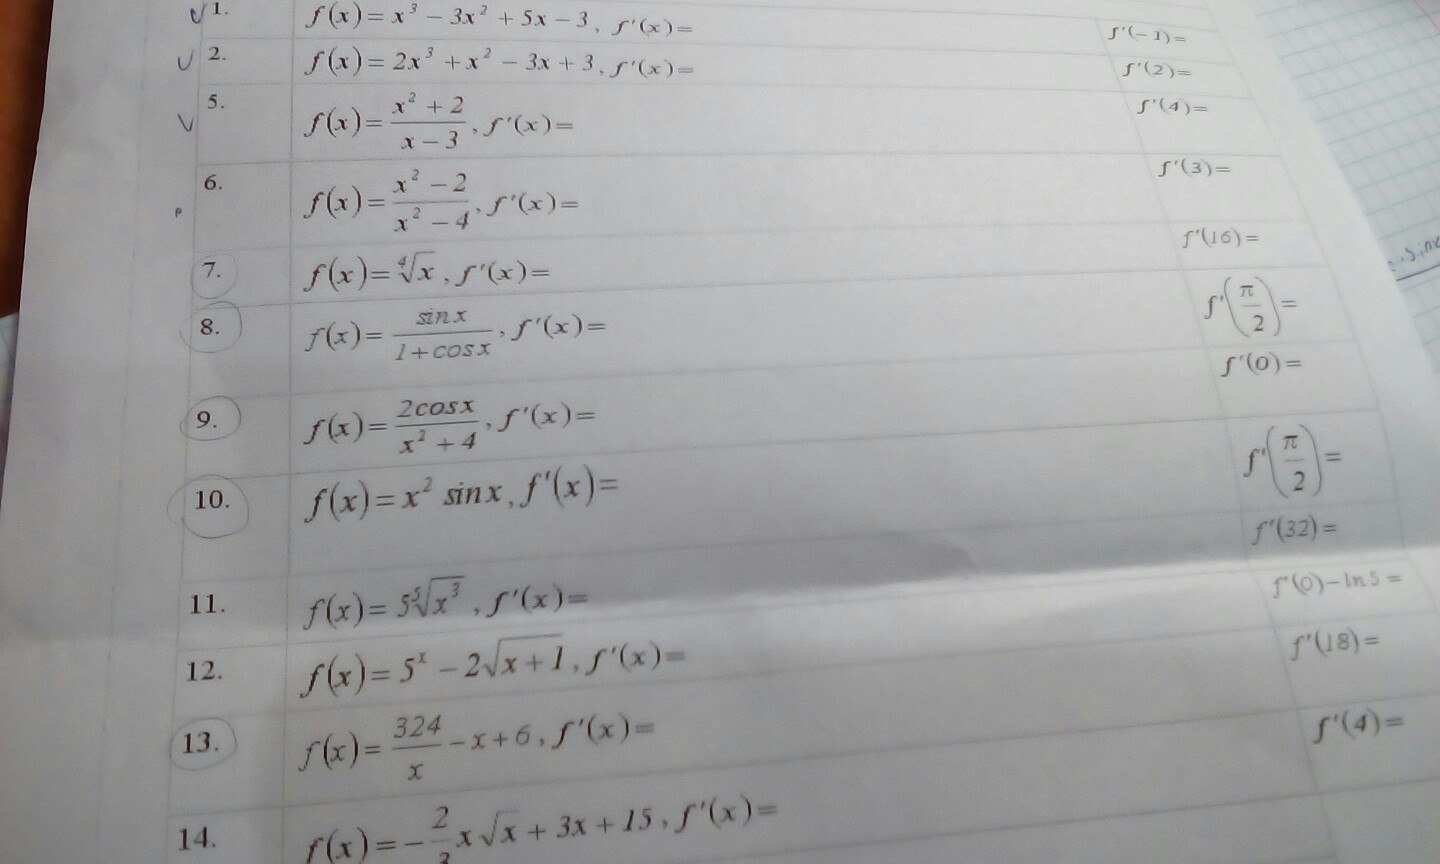 1. f(x)=x³−3x²+5x−3, f'(x)= f'(−1)=
2. f(x)=2x³+x²−3x+3, f'(x)= f'(2)=
5. f(x)=\frac{x²+2}{x−3}, f'(x)= f'(4)=
6. f(x)=\frac{x²−2}{x²−4}, f'(x)= f'(3)=
7. f(x)=∜x, f'(x)= f'(16)=
8. f(x)=\frac{sinx}{1+cosx}, f'(x)= f'(\frac{π}{2})=
9. f(x)=\frac{2cosx}{x²+4}, f'(x)= f'(0)=
10. f(x)=x² sinx, f'(x)= f'(\frac{π}{2})=
11. f(x)=5\sqrt[5]{x³}, f'(x)= f'(32)=
12. f(x)=5ˣ−2\sqrt{x+1}, f'(x)= f'(0)−ln5=
13. f(x)=\frac{324}{x}−x+6, f'(x)= f'(18)=
14. f(x)=−\frac{2}{3}x√x+3x+15, f'(x)= f'(4)=